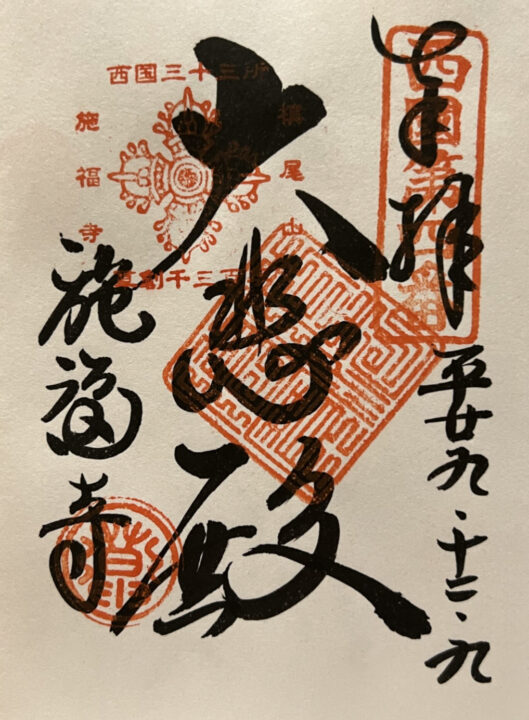 奉拝
西国第四番
平廿九・十二・九
大悲殿
西国三十三所
槙尾山
施福寺
草創千三百年
施福寺